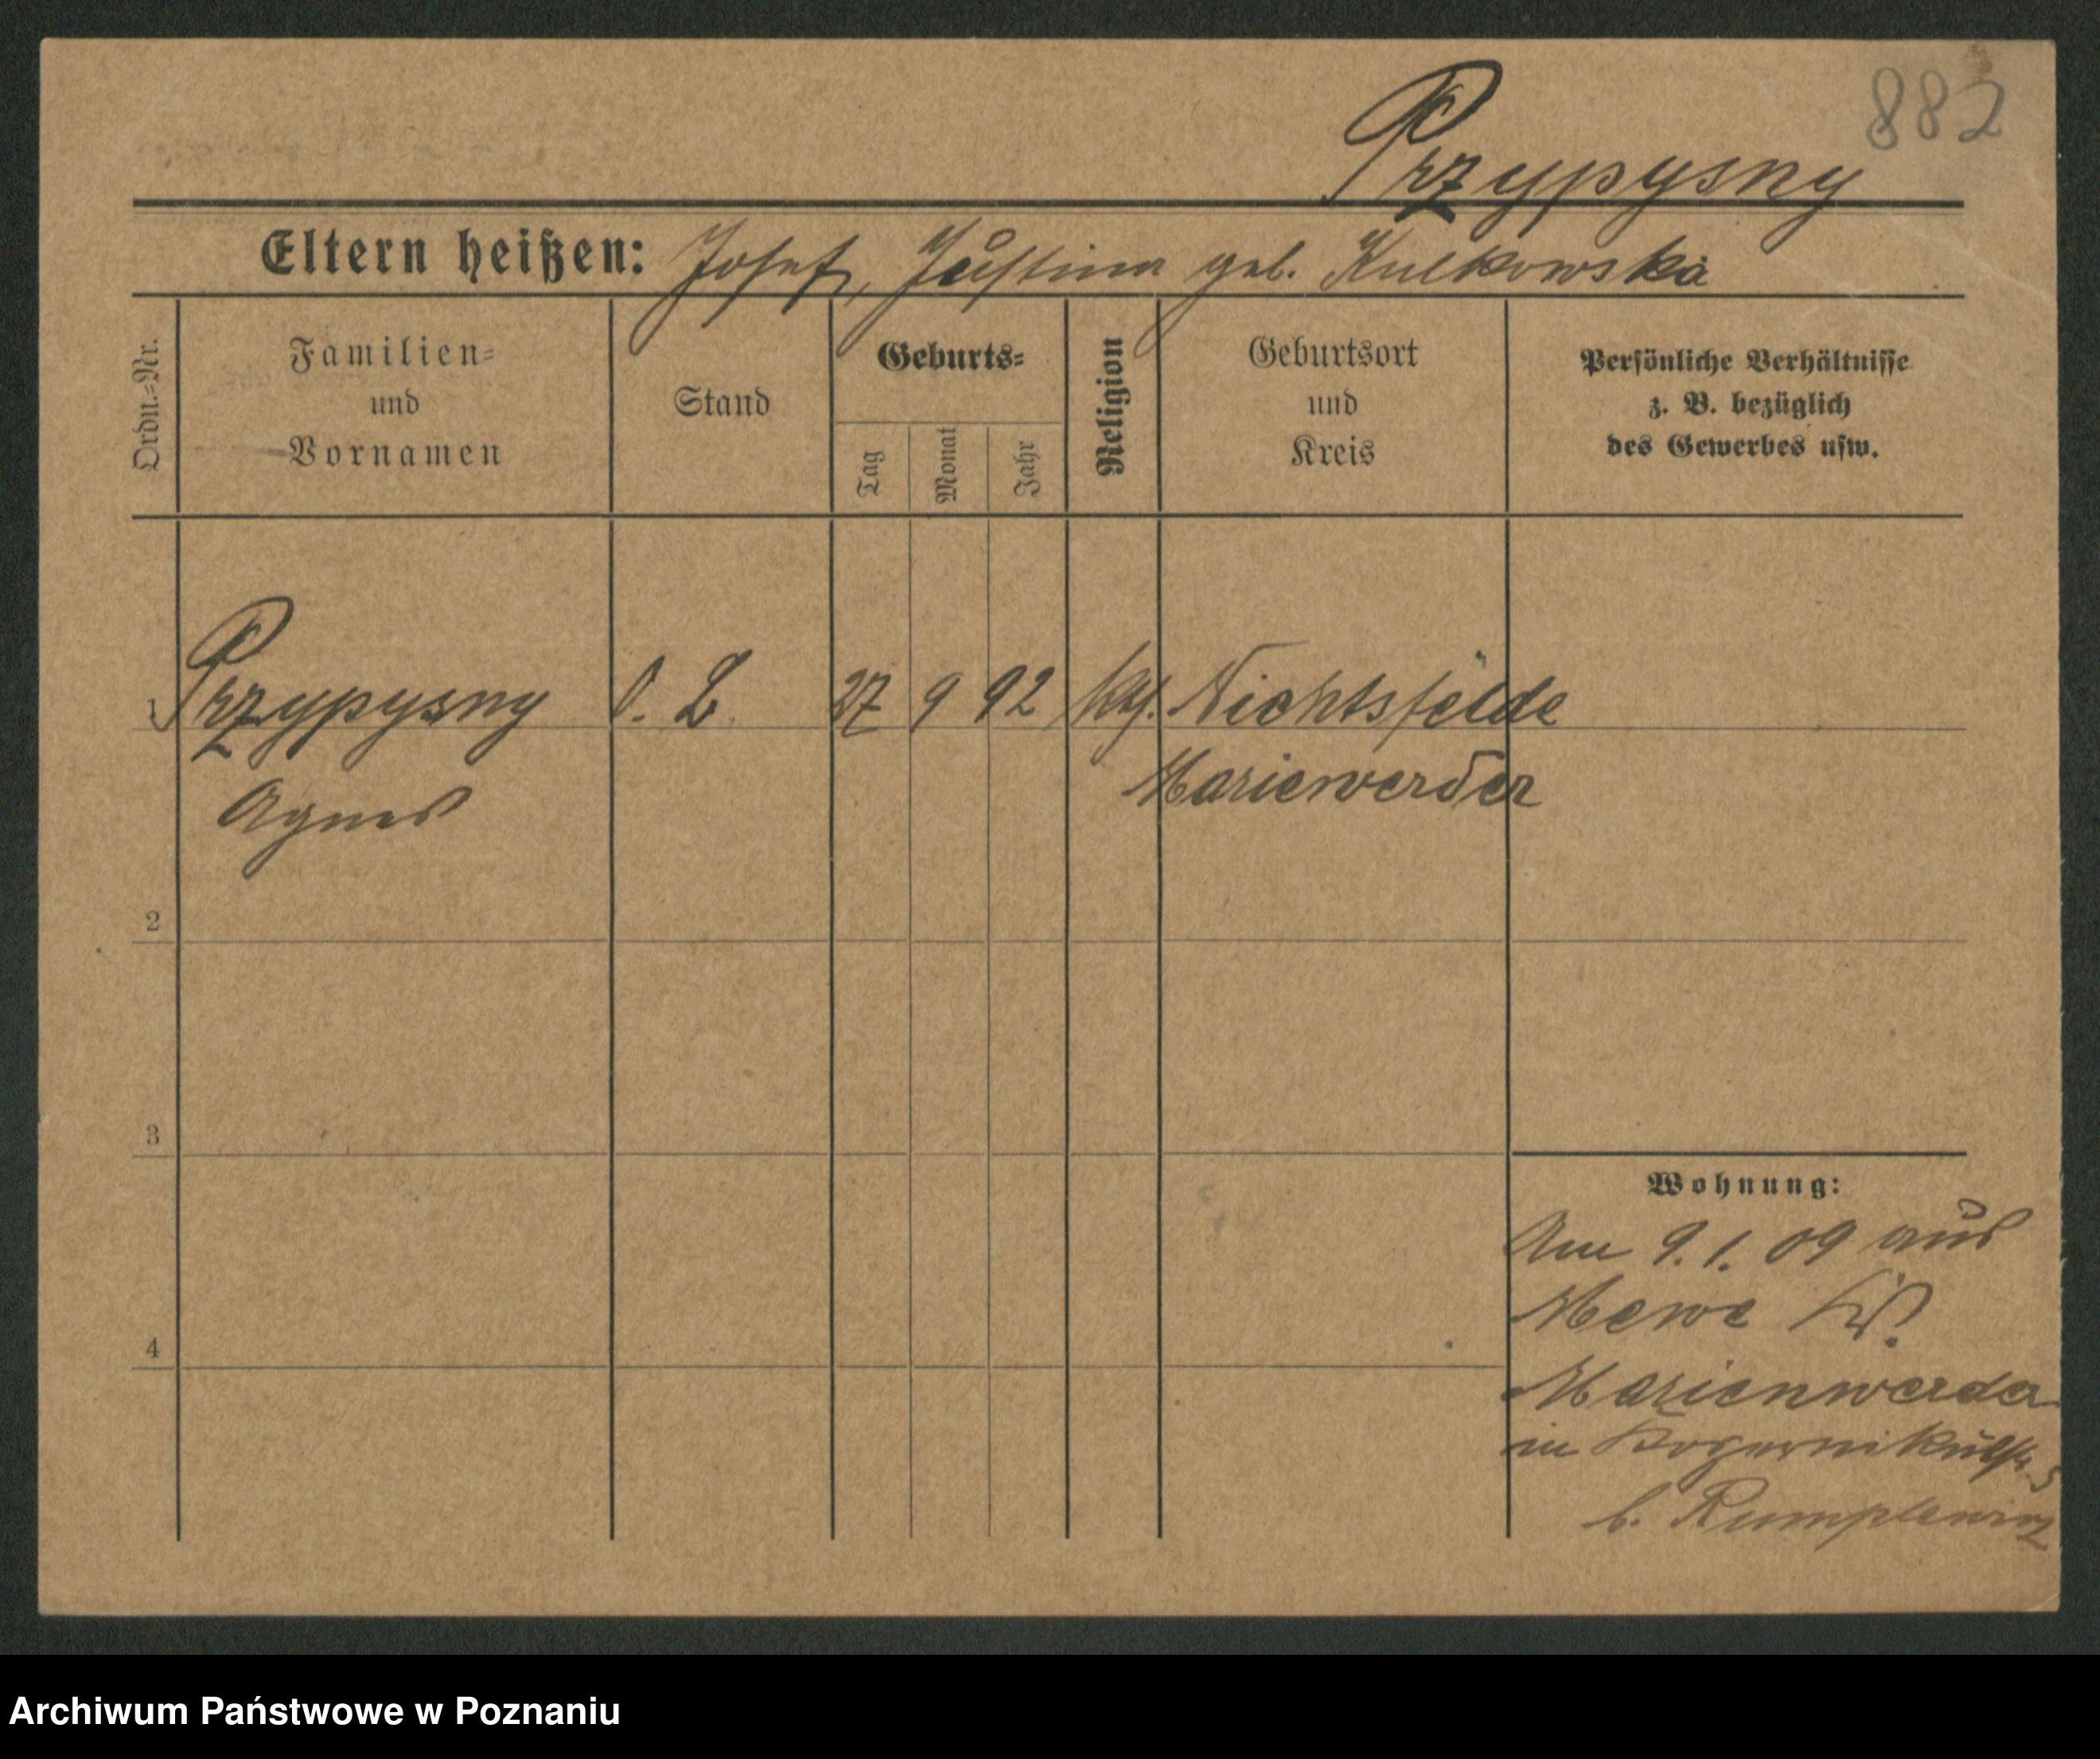 882
Przypysny
Eltern heißen: Josef, Justina geb. Kulkowska
Ordn.=Nr.
Familien=
und
Vornamen
Stand
Geburts=
Tag
Monat
Jahr
Religion
Geburtsort
und
Kreis
Persönliche Verhältnisse
z. B. bezüglich
des Gewerbes usw.
1 Przypysny O. L. 27 9 92 Nichtsfelde
Agnes Marienwerder
2
3
4
Wohnung:
Am 9.1.09 aus
Mewe
Marienwerder
in
b.
Archiwum Państwowe w Poznaniu